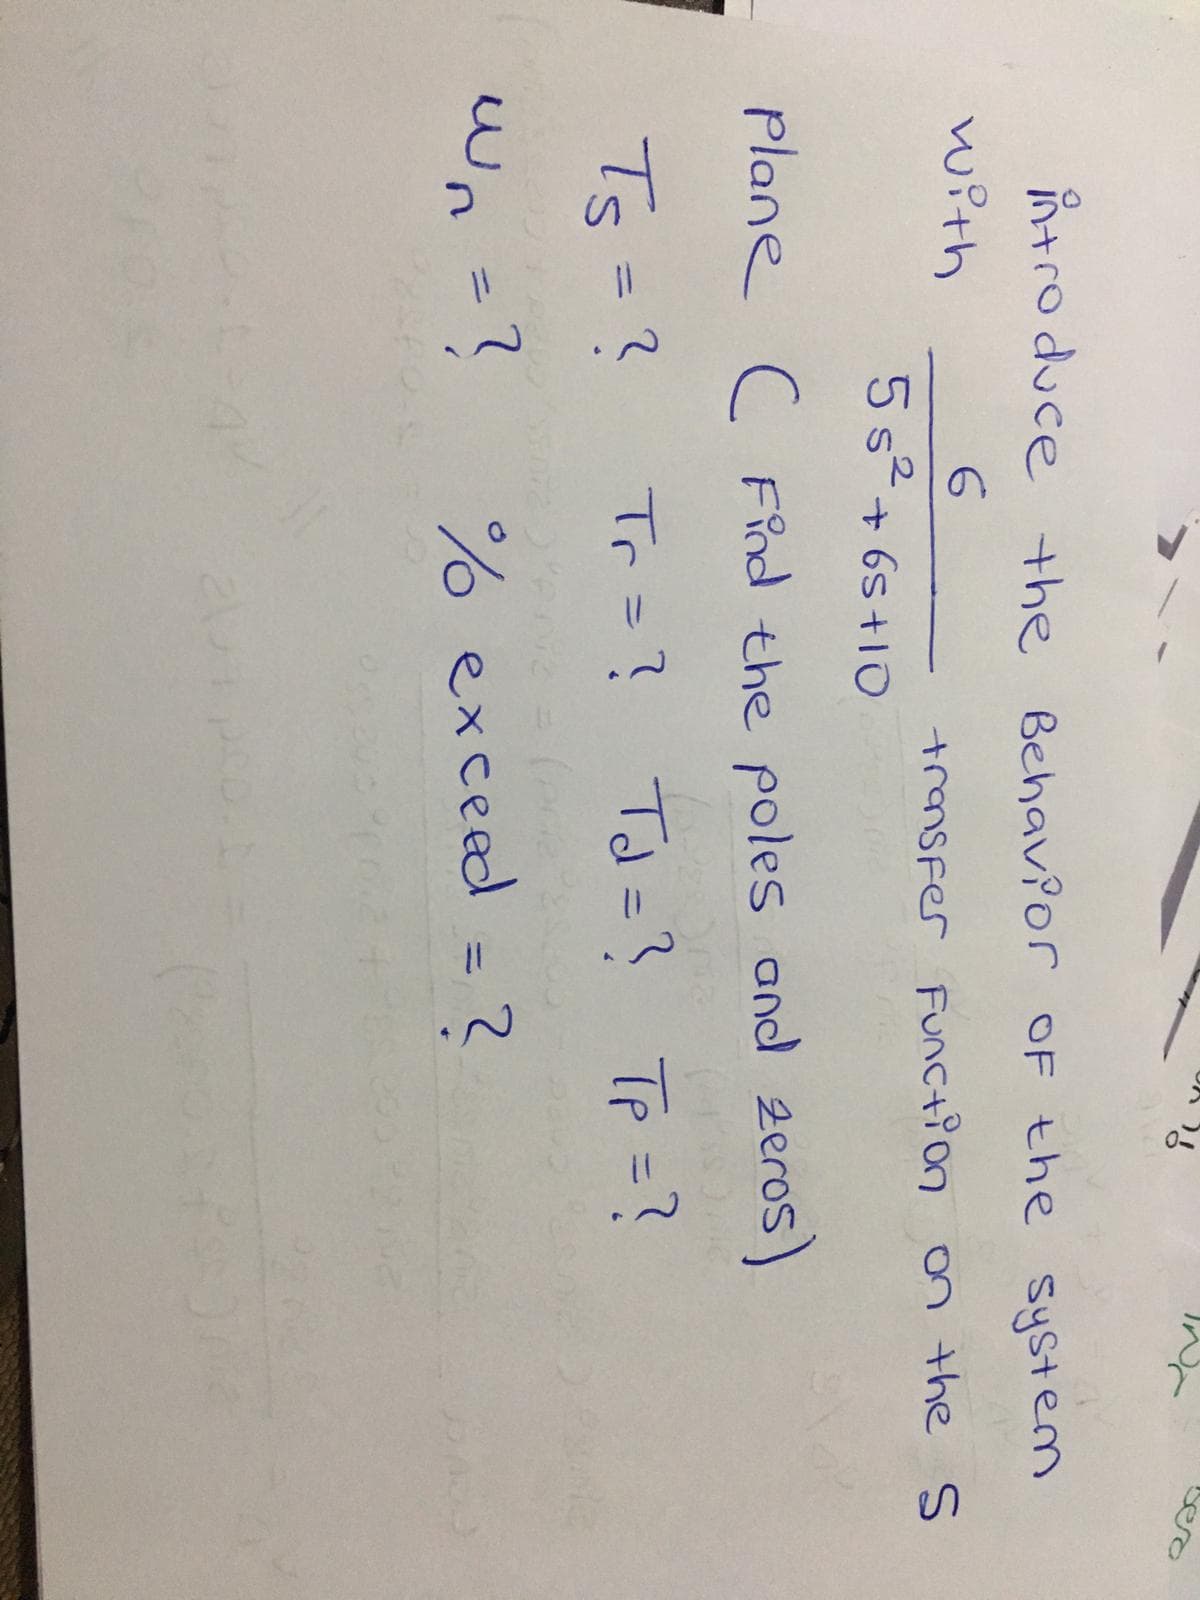 introduce the Behavior of the system
with 6 / 5s² + 6s+10 transfer function on the s
plane ( Find the poles and zeros)
Ts = ? Tr = ? Td = ? Tp = ?
Wn = ? % exceed = ?